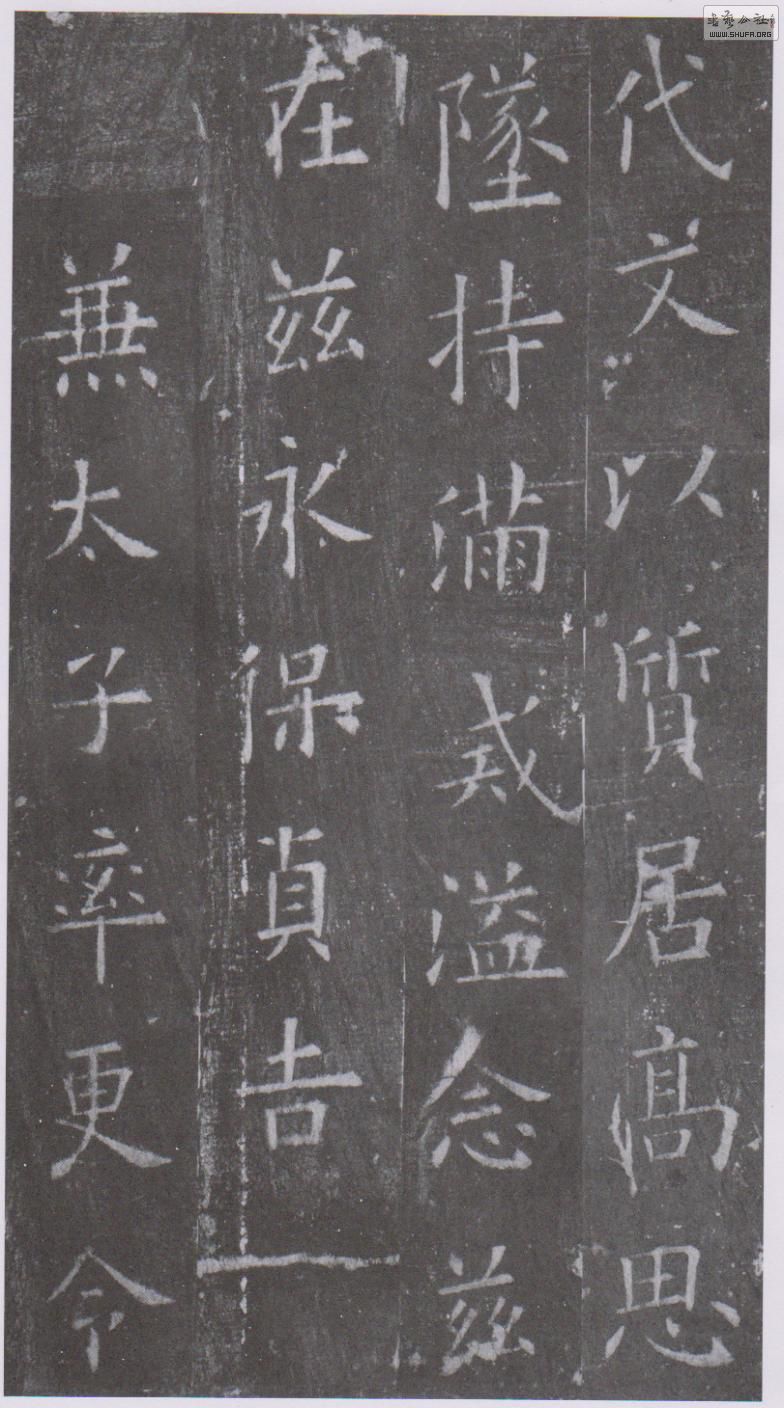 代文以質居高思
墜持滿戒溢念茲
在茲永保貞吉
兼太子率更令
書藝公社
WWW.SHUFA.ORG